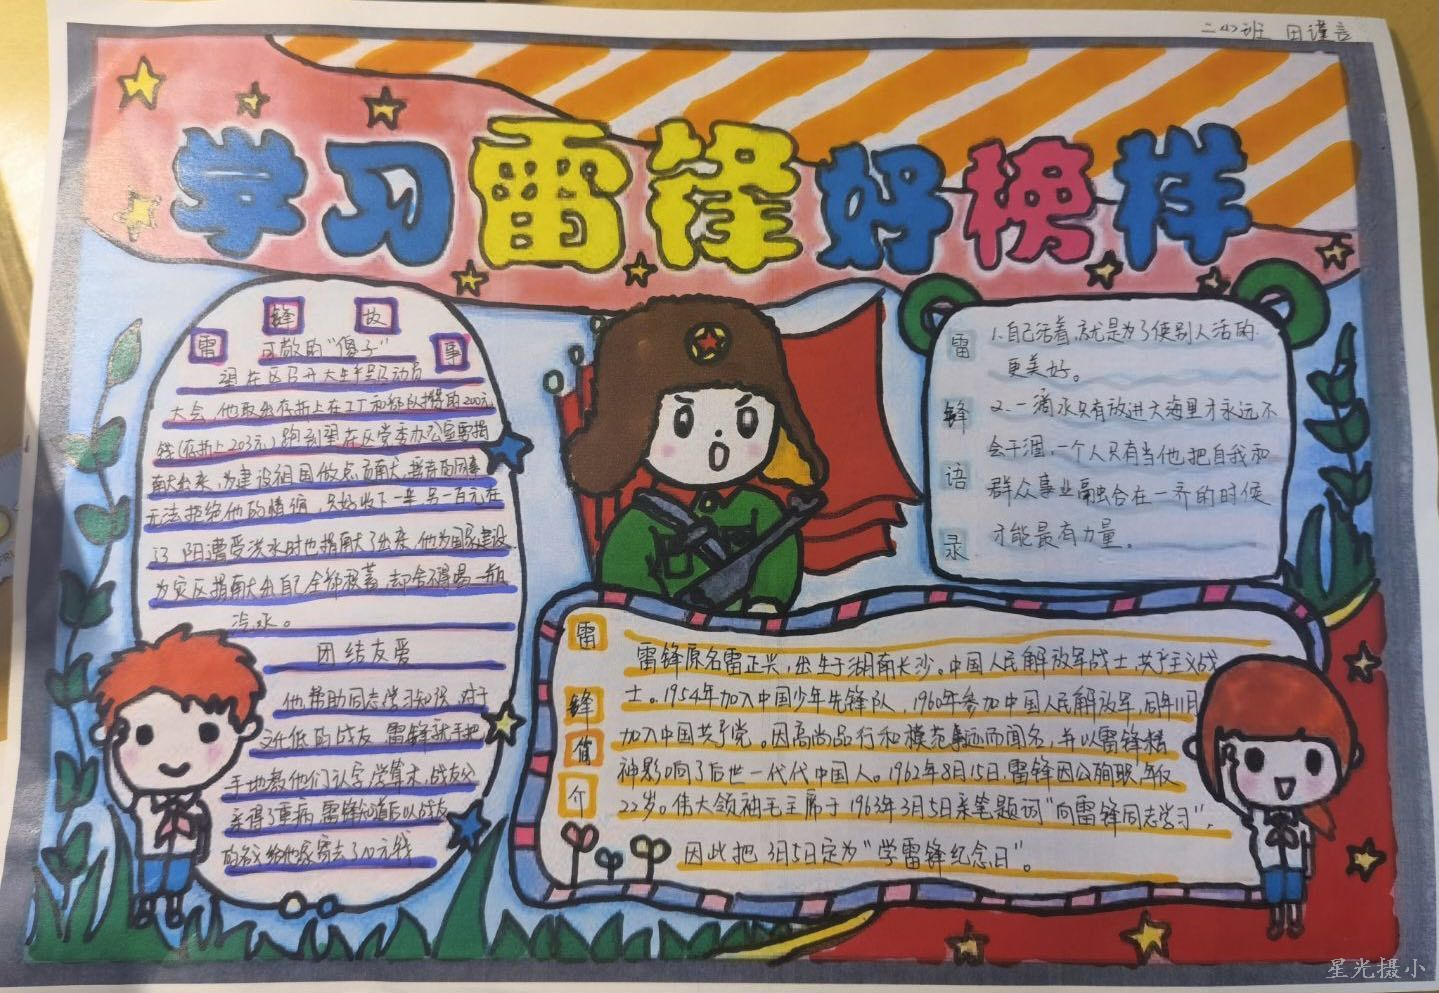 二(4)班 田谨言
学习雷锋好榜样
雷锋故事
可敬的“傻子”
望在区召开大生产号召动员
大会,他取出存折上在工厂和部队攒的200元
钱(存折上203元)跑到望在区党委办公室要捐
献出来,为建设祖国做点贡献,接待的同事
无法拒绝他的情谊,只好收下一半.另一百元在
辽阳遭受洪水时也捐献了出来.他为国家建设
为灾区捐献出自己全部积蓄,却舍不得喝一瓶
汽水。
团结友爱
他帮助同志学习知识,对于
文化低的战友 雷锋就手把
手地教他们认字,学算术,战友父
亲得了重病,雷锋知道后以战友
的名义给他家寄去了10元钱
雷锋语录
1.自己活着,就是为了使别人活的
更美好。
2.一滴水只有放进大海里才永远不
会干涸,一个人只有当他把自我和
群众事业融合在一齐的时候
才能最有力量。
雷锋简介
雷锋原名雷正兴,出生于湖南长沙。中国人民解放军战士,共产主义战
士。1954年加入中国少年先锋队,1960年参加中国人民解放军,同年11月
加入中国共产党。因高尚品行和模范事迹而闻名,并以雷锋精
神影响了后世一代代中国人。1962年8月15日,雷锋因公殉职,年仅
22岁。伟大领袖毛主席于1963年3月5日亲笔题词“向雷锋同志学习”,
因此把3月5日定为“学雷锋纪念日”。
星光摄小